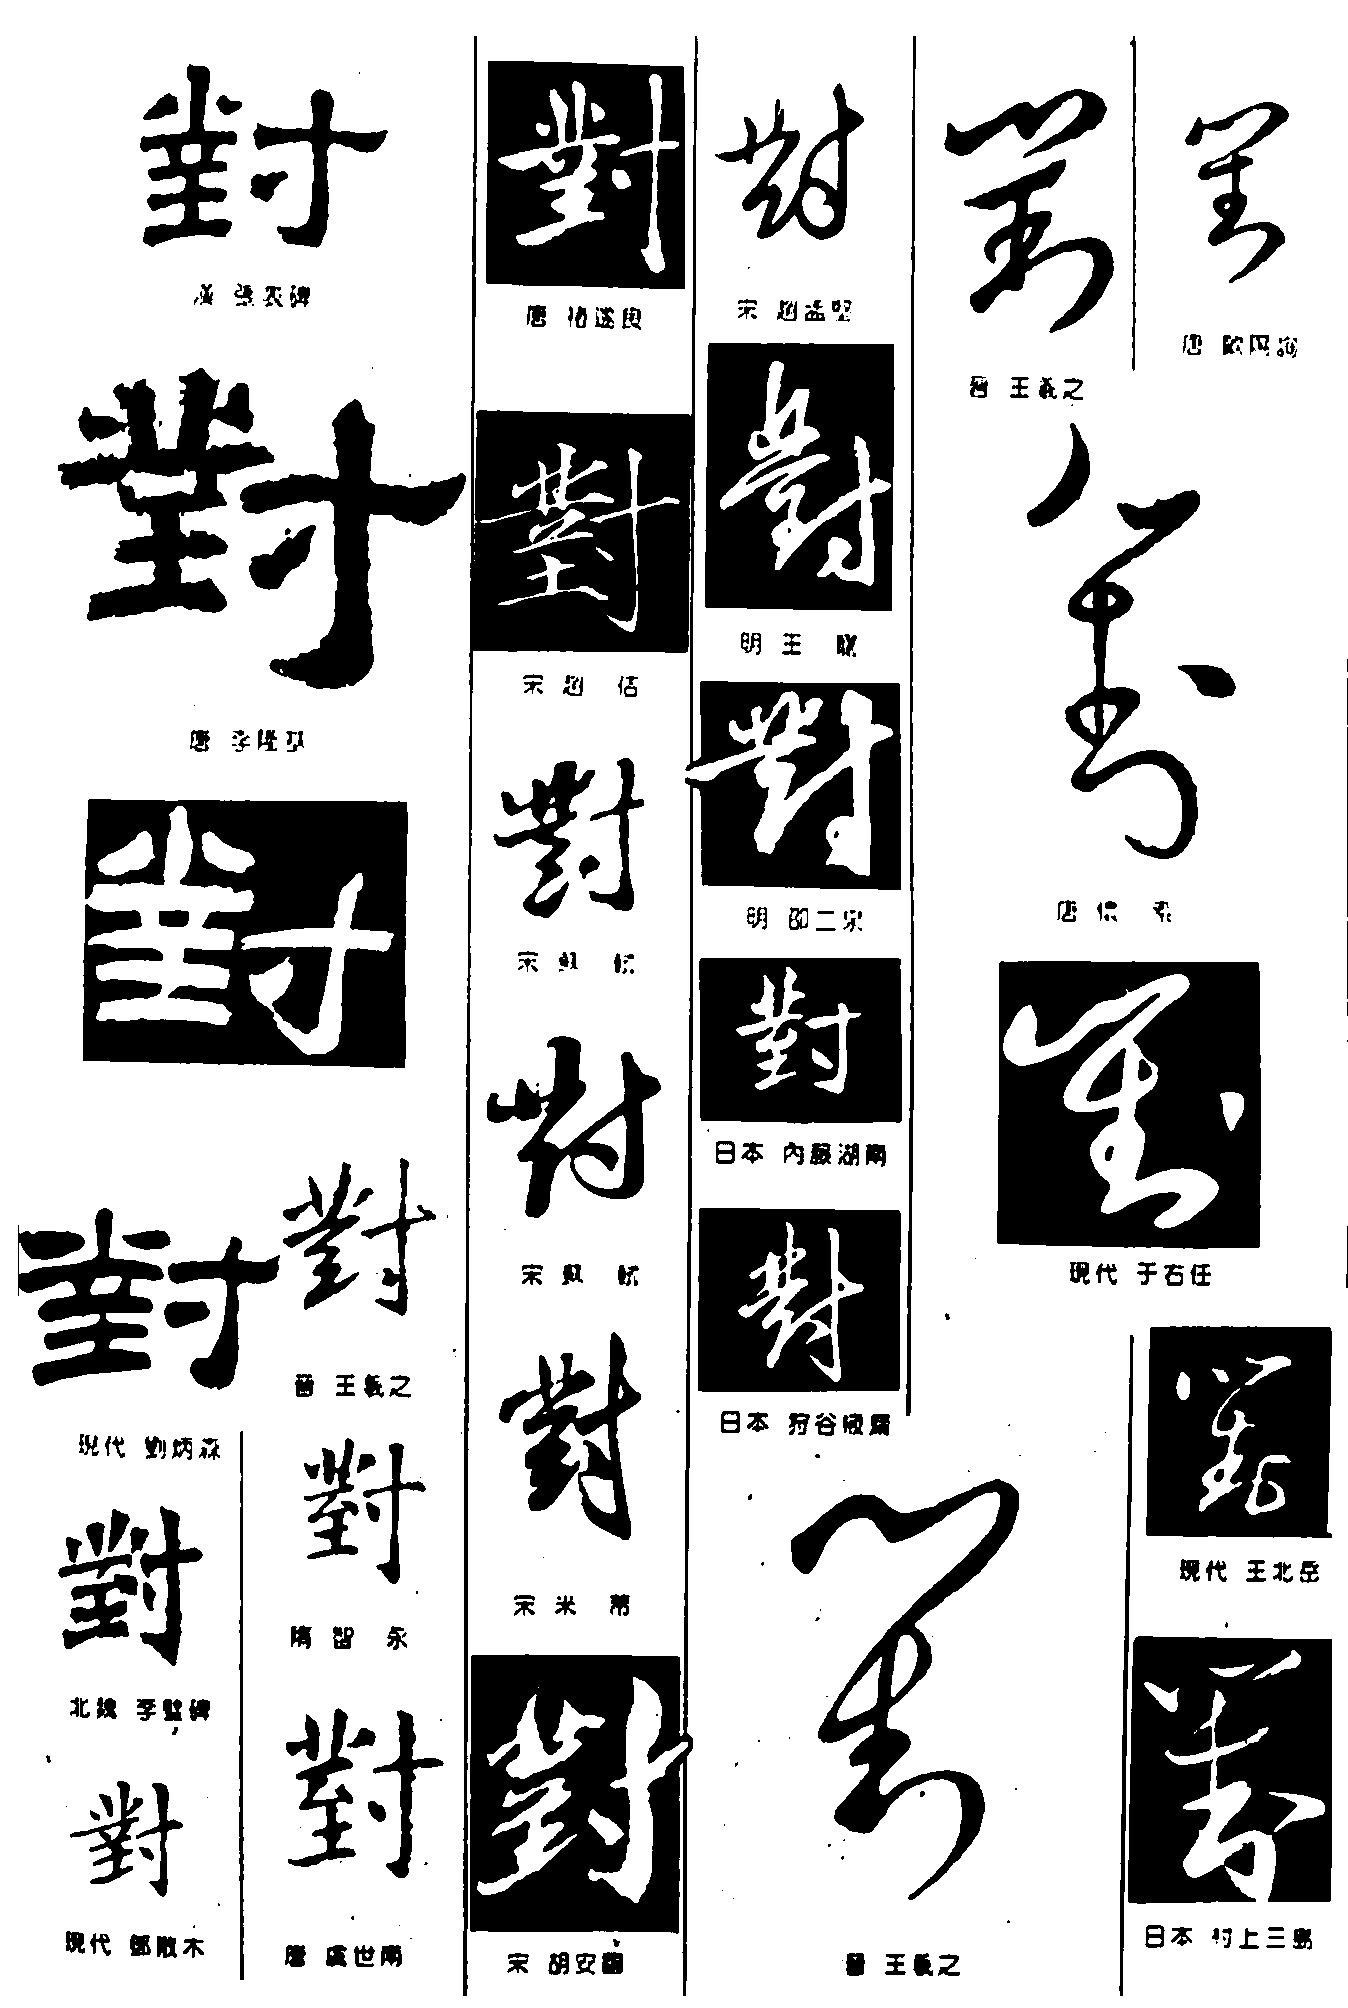 對
漢 張表碑
對
唐 李隆基
對
對
現代 劉炳森
對
北魏 李璧碑
對
現代 鄧散木
對
晉 王羲之
對
隋 智 永
對
唐 虞世南
對
唐 褚遂良
對
宋 趙 佶
對
宋 蘇 軾
對
宋 蘇 軾
對
宋 米 芾
對
宋 胡安國
對
宋 趙孟堅
對
明 王
對
明 邵二泉
對
日本 內藤湖南
對
日本 狩谷掖齋
對
晉 王羲之
對
唐 歐陽詢
對
唐 懷 素
對
現代 于右任
對
晉 王羲之
對
現代 王北岳
對
日本 村上三島